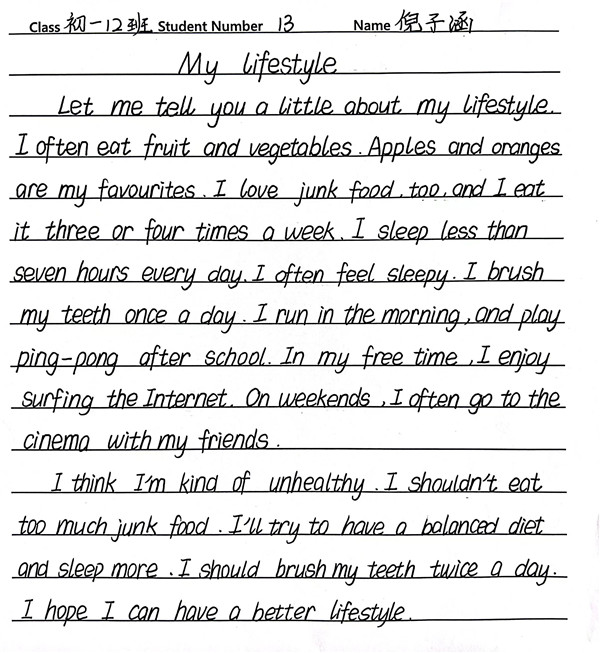 Class 初一12班 Student Number 13 Name 倪子涵
My lifestyle
Let me tell you a little about my lifestyle.
I often eat fruit and vegetables. Apples and oranges
are my favourites. I love junk food, too, and I eat
it three or four times a week. I sleep less than
seven hours every day. I often feel sleepy. I brush
my teeth once a day. I run in the morning, and play
ping-pong after school. In my free time, I enjoy
surfing the Internet. On weekends, I often go to the
cinema with my friends.
I think I'm kind of unhealthy. I shouldn't eat
too much junk food. I'll try to have a balanced diet
and sleep more. I should brush my teeth twice a day.
I hope I can have a better lifestyle.